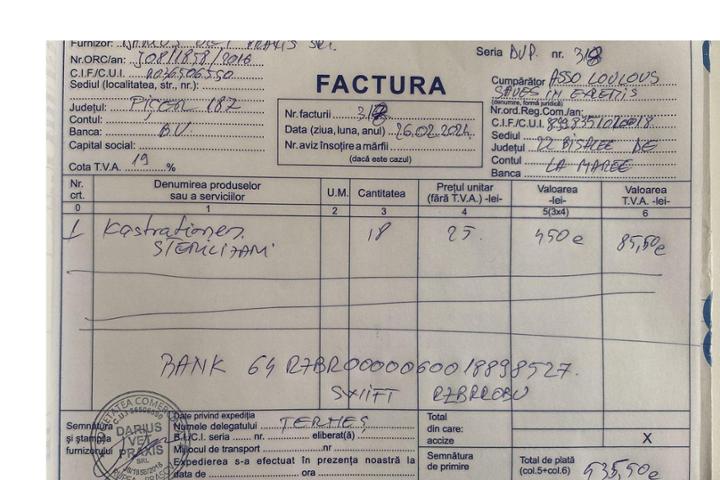 Furnizor: DARIUS VET PRAXIS SRL.
Nr.ORC/an: J08/1858/2016
C.I.F./C.U.I. RO36506550
Sediul (localitatea, str., nr.):
Județul: 187
Contul:
Banca: B.V.
Capital social:
Cota T.V.A. 19 %
FACTURA
Nr.facturii
Data (ziua, luna, anul) 26.02.2024
Nr.aviz însoțire a mărfii
(dacă este cazul)
Seria DVP. nr.
Cumpărător ASSO LOULOUS
(denumire, formă juridică)
Nr.ord.Reg.Com./an:
C.I.F./C.U.I.
Sediul
Județul 22 DE
Contul LA MAREE
Banca
Nr. crt. Denumirea produselor sau a serviciilor U.M. Cantitatea Prețul unitar (fără T.V.A.) -lei- Valoarea -lei- Valoarea T.V.A. -lei-
0 1 2 3 4 5(3x4) 6
1 Kastrationen 18 25. 450 e 85,50 e
STERILIZARI
BANK 64 RZBR0000060018898527.
SWIFT RZBRROBU
SOCIETATEA COMERCIALA
DARIUS
VET
PRAXIS
SRL
Semnătura și ștampila furnizorului
Date privind expediția
Numele delegatului TERMEȘ
B.I./C.I. seria nr. eliberat(ă)
Mijlocul de transport nr
Expedierea s-a efectuat în prezența noastră la
data de ora
Total
din care:
accize X
Semnătura
de primire
Total de plată
(col.5+col.6) 535,50 e